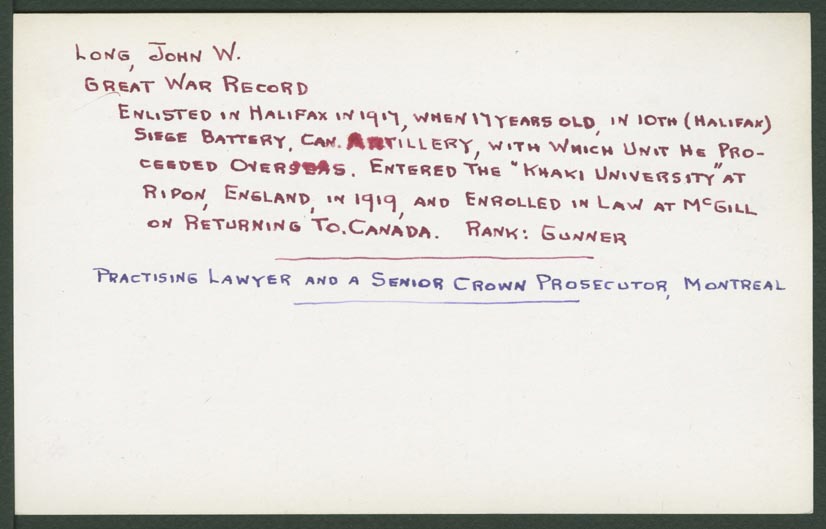 Long, John W.
Great War Record
Enlisted in Halifax in 1917, when 17 years old, in 10th (Halifax)
Siege Battery, Can. Artillery, with which unit he pro-
ceeded overseas. Entered the "Khaki University" at
Ripon, England, in 1919, and enrolled in Law at McGill
on returning to. Canada. Rank: Gunner
Practising Lawyer and a Senior Crown Prosecutor, Montreal